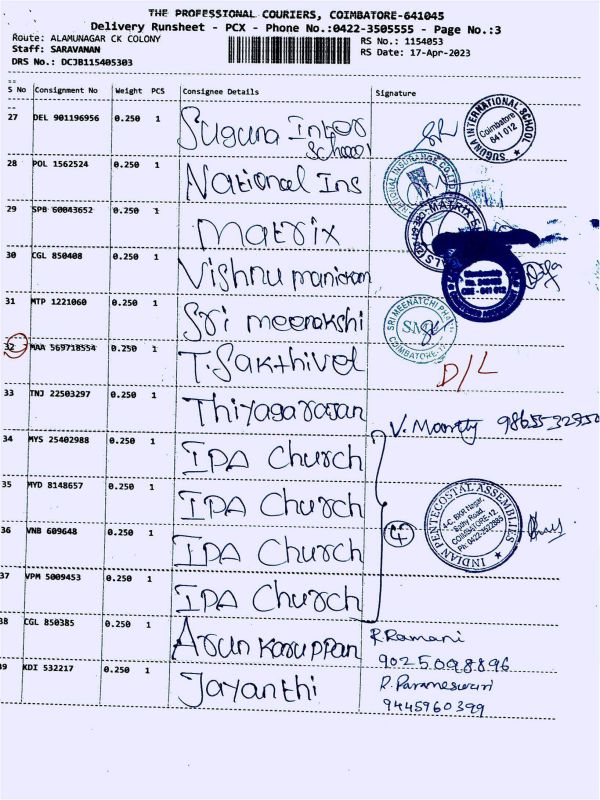 THE PROFESSIONAL COURIERS, COIMBATORE-641045
Delivery Runsheet - PCX - Phone No.:0422-3505555 - Page No.:3
Route: ALAMUNAGAR CK COLONY
RS No.: 1154053
Staff: SARAVANAN
RS Date: 17-Apr-2023
DRS No.: DCJB115405303
S No Consignment No Weight PCS Consignee Details Signature
27 DEL 901196956 0.250 1 Suguna Inter School
SUGUNA INTERNATIONAL SCHOOL Coimbatore 641 012
28 POL 1562524 0.250 1 National Ins
29 SPB 60043652 0.250 1 Matrix
30 CGL 850408 0.250 1 Vishnu manickam
31 MTP 1221060 0.250 1 Sri meenakshi
SRI MEENATCHI COIMBATORE
32 MAA 569718554 0.250 1 T. Sakthivel D/L
33 TNJ 22503297 0.250 1 Thiyagarajan
V. Moorthy
34 MYS 25402988 0.250 1 IPA Church
35 MYD 8148657 0.250 1 IPA Church
36 VNB 609648 0.250 1 IPA Church
4
INDIAN PENTECOSTAL ASSEMBLIES
COIMBATORE-12.
37 VPM 5009453 0.250 1 IPA Church
38 CGL 850385 0.250 1 Arun Karuppan R.Ramani
9025098896
39 KDI 532217 0.250 1 Jayanthi R. Parameswari
9445960399